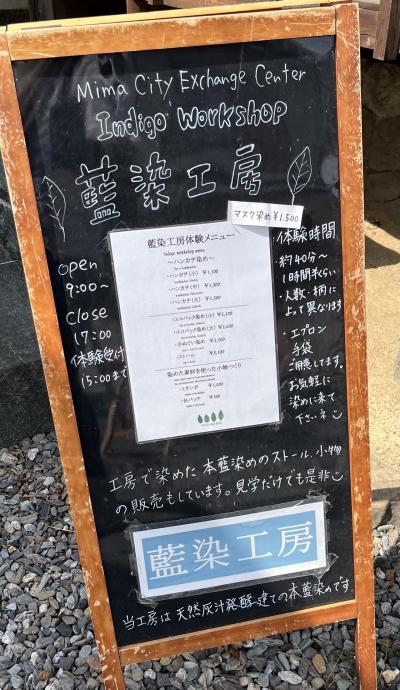 Mima City Exchange Center
Indigo Workshop
藍染工房
マスク染め ¥1,500
open
9:00〜
close
17:00
体験受付
15:00まで
藍染工房体験メニュー
Indigo workshop menu
〜ハンカチ染め〜
・ハンカチ(小) ¥1,100
・ハンカチ(中) ¥1,300
・ハンカチ(大) ¥1,500
・エコバック染め(小) ¥2,100
・エコバック染め(大)
・手ぬぐい染め
・ストール
染めた素材を使った小物つくり
・ミサンガ ¥1,000
・缶バッチ ¥500
体験時間
約40分〜
1時間半くらい
人数・柄に
よって異なります
・エプロン
手袋
ご用意してます。
お気軽に
染めに来て
下さいネ
工房で染めた本藍染めのストール、小物
の販売もしています。見学だけでも是非
藍染工房
当工房は天然灰汁発酵建ての本藍染めです